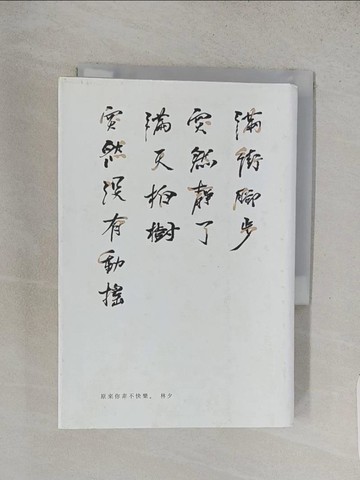 滿街腳步
突然靜了
滿天柏樹
突然沒有動搖
原來你非不快樂。 林夕